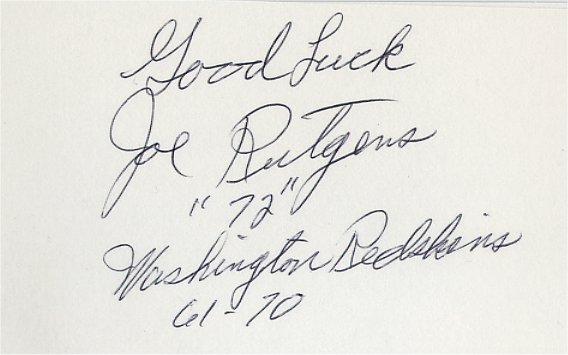 Good Luck
Joe Rutgens
"72"
Washington Redskins
61-70